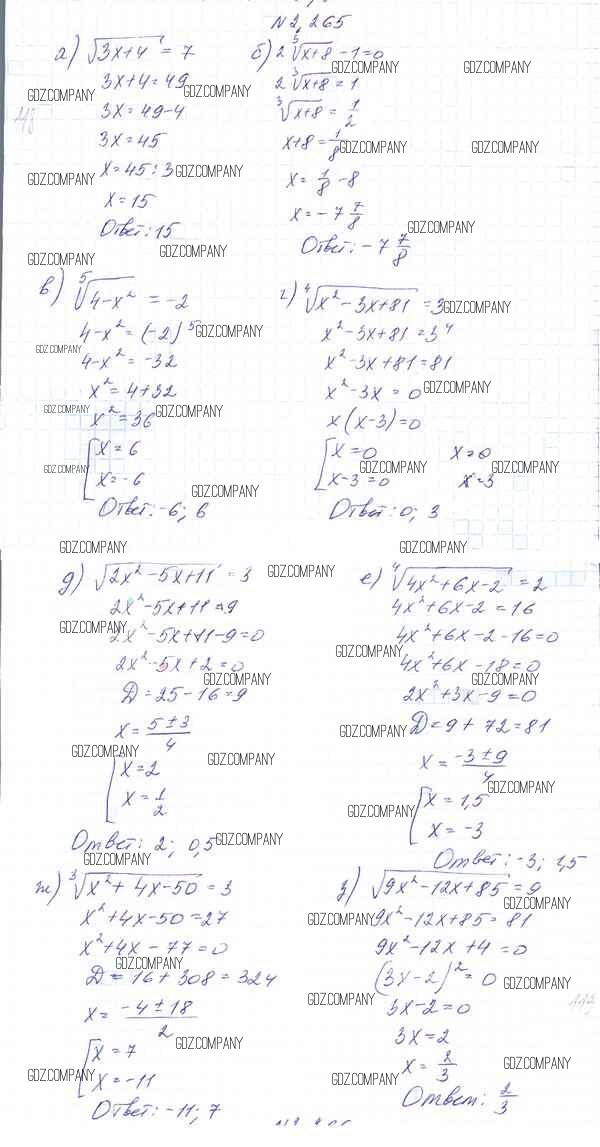 №2.265
а) √3x+4 = 7
3x+4=49
3x=49-4
3x=45
x=45:3
x=15
Ответ: 15
б) 2 ⁵√x+8 -1=0
2 ³√x+8 =1
³√x+8 = 1/2
x+8=1/8
x= 1/8 -8
x= -7 7/8
Ответ: -7 7/8
в) ⁵√4-x² = -2
4-x²=(-2)⁵
4-x²= -32
x²=4+32
x²=36
[x=6
x=-6
Ответ: -6; 6
г) ⁴√x²-3x+81 =3
x²-3x+81=3⁴
x²-3x+81=81
x²-3x=0
x(x-3)=0
[x=0 x=0
x-3=0 x=3
Ответ: 0; 3
д) √2x²-5x+11 = 3
2x²-5x+11=9
2x²-5x+11-9=0
2x²-5x+2=0
D=25-16=9
x= 5±3/4
[x=2
x= 1/2
Ответ: 2; 0,5
е) ⁴√4x²+6x-2 =2
4x²+6x-2=16
4x²+6x-2-16=0
4x²+6x-18=0
2x²+3x-9=0
D=9+72=81
x= -3±9/4
[x=1,5
x=-3
Ответ: -3; 1,5
ж) ³√x²+4x-50 =3
x²+4x-50=27
x²+4x-77=0
D=16+308=324
x= -4±18/2
[x=7
x=-11
Ответ: -11; 7
з) √9x²-12x+85 =9
9x²-12x+85=81
9x²-12x+4=0
(3x-2)²=0
3x-2=0
3x=2
x= 2/3
Ответ: 2/3
GDZ.COMPANY